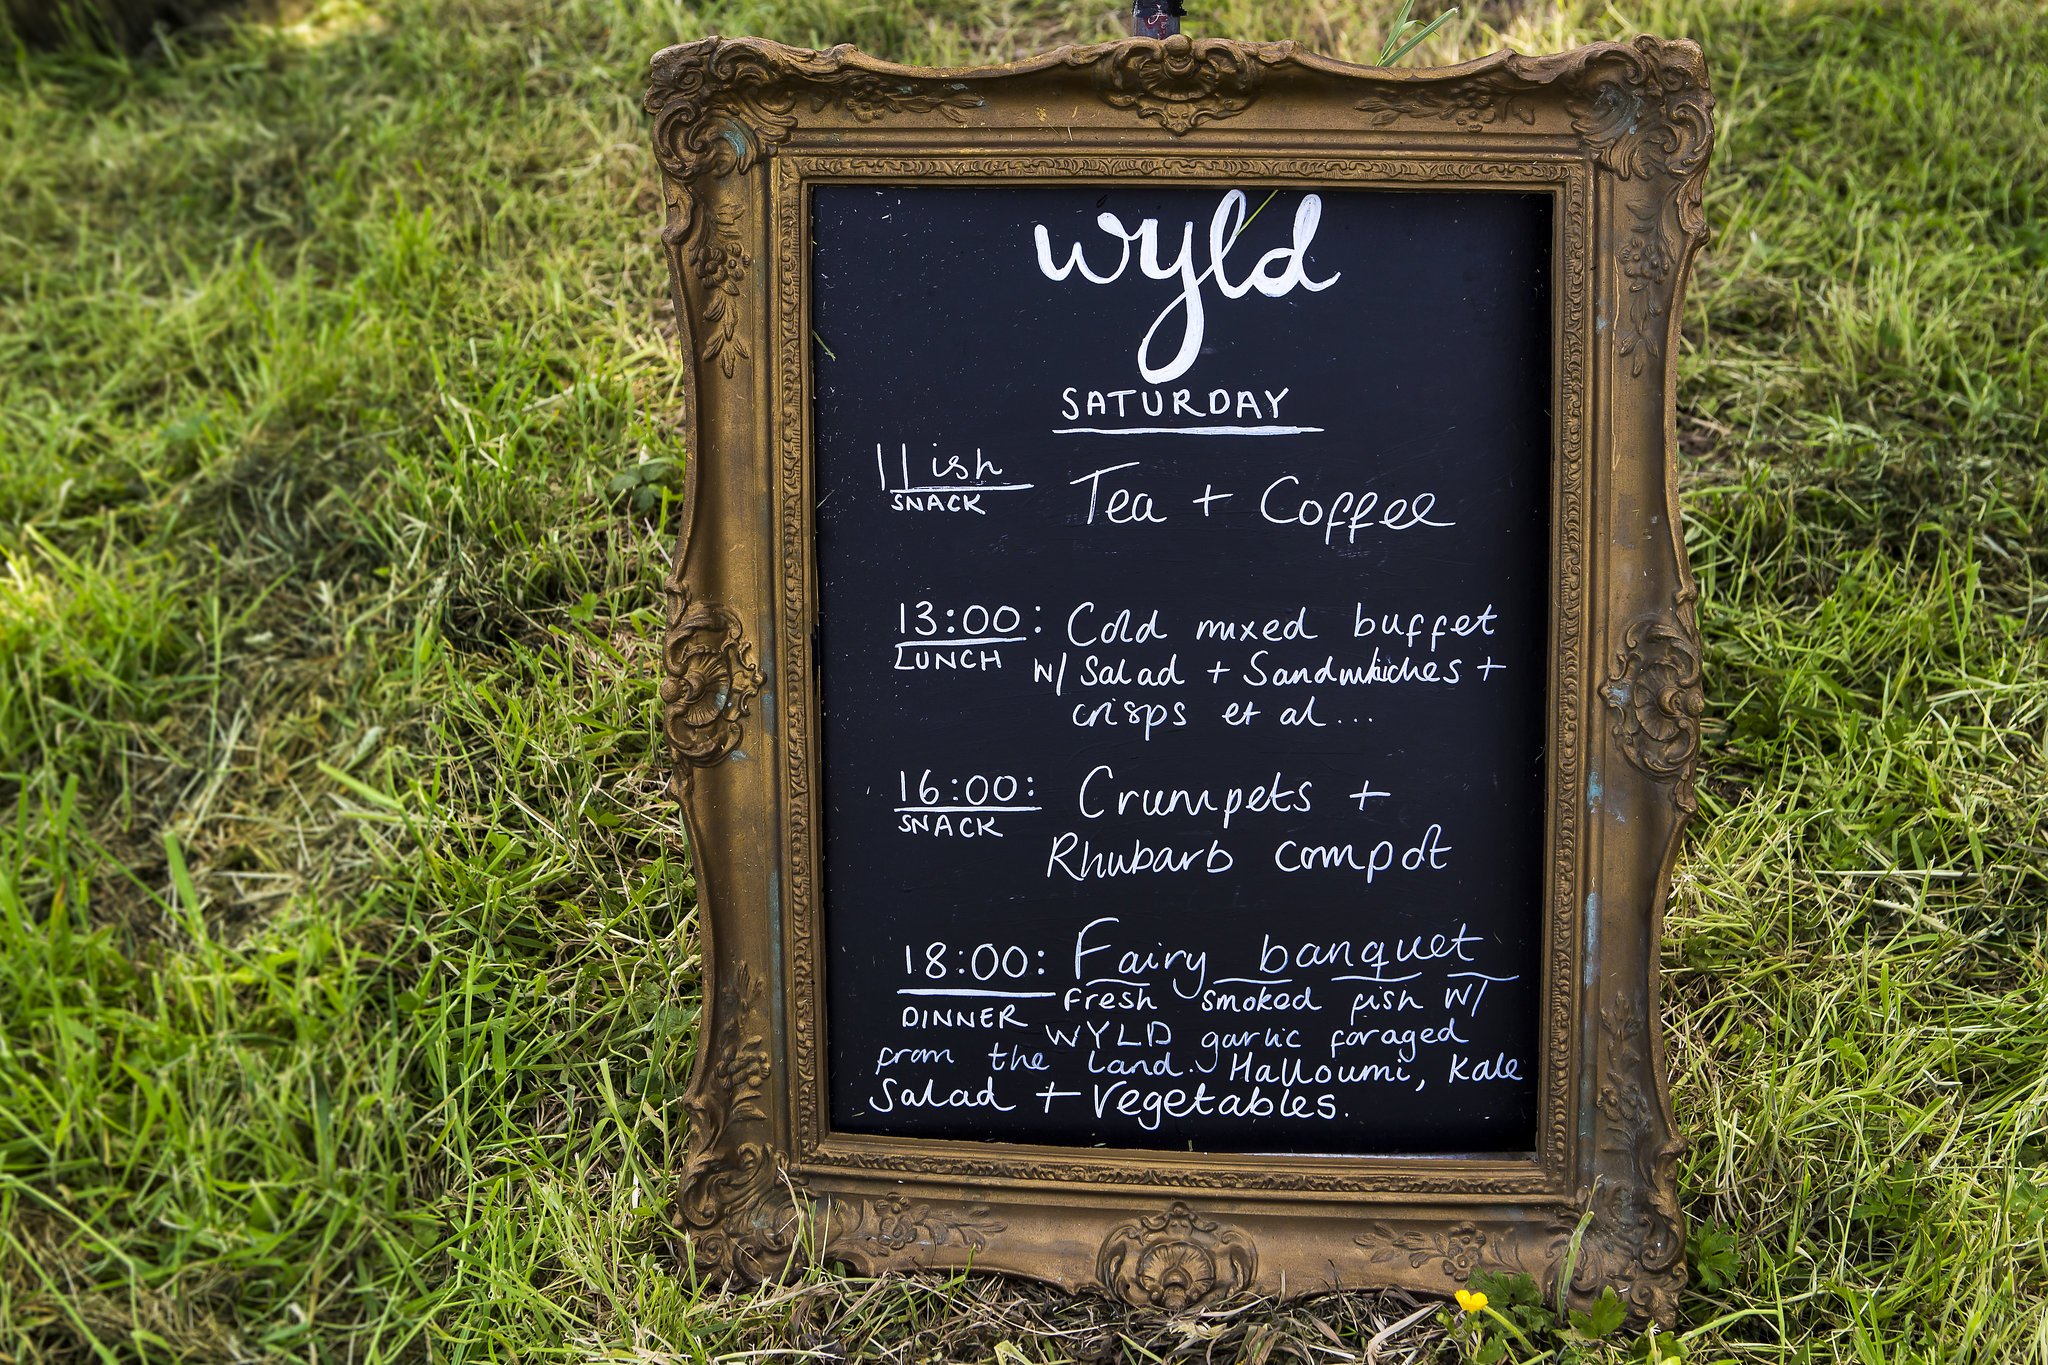 wyld
SATURDAY
11 ish Tea + Coffee
SNACK
13:00: Cold mixed buffet
LUNCH w/ Salad + Sandwhiches +
crisps et al...
16:00: Crumpets +
SNACK
Rhubarb compot
18:00: Fairy banquet
Fresh smoked fish w/
DINNER WYLD garlic foraged
from the land. Halloumi, Kale
Salad + Vegetables.